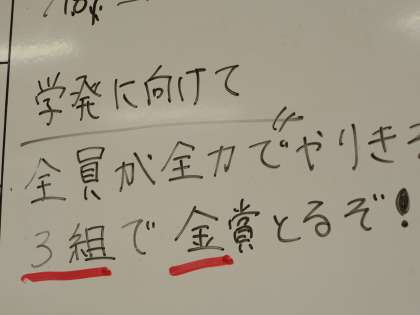 学発に向けて
全員が全力でやりき
3組で金賞とるぞ!